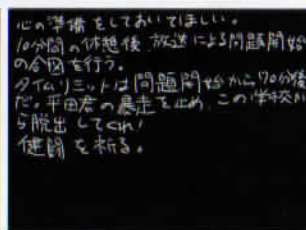 心の準備をしておいてほしい。
10分間の休憩後 放送による問題開始
の合図を行う。
タイムリミットは問題開始から70分後
だ。平田君の暴走を止め、この学校か
ら脱出してくれ!
健闘を祈る。